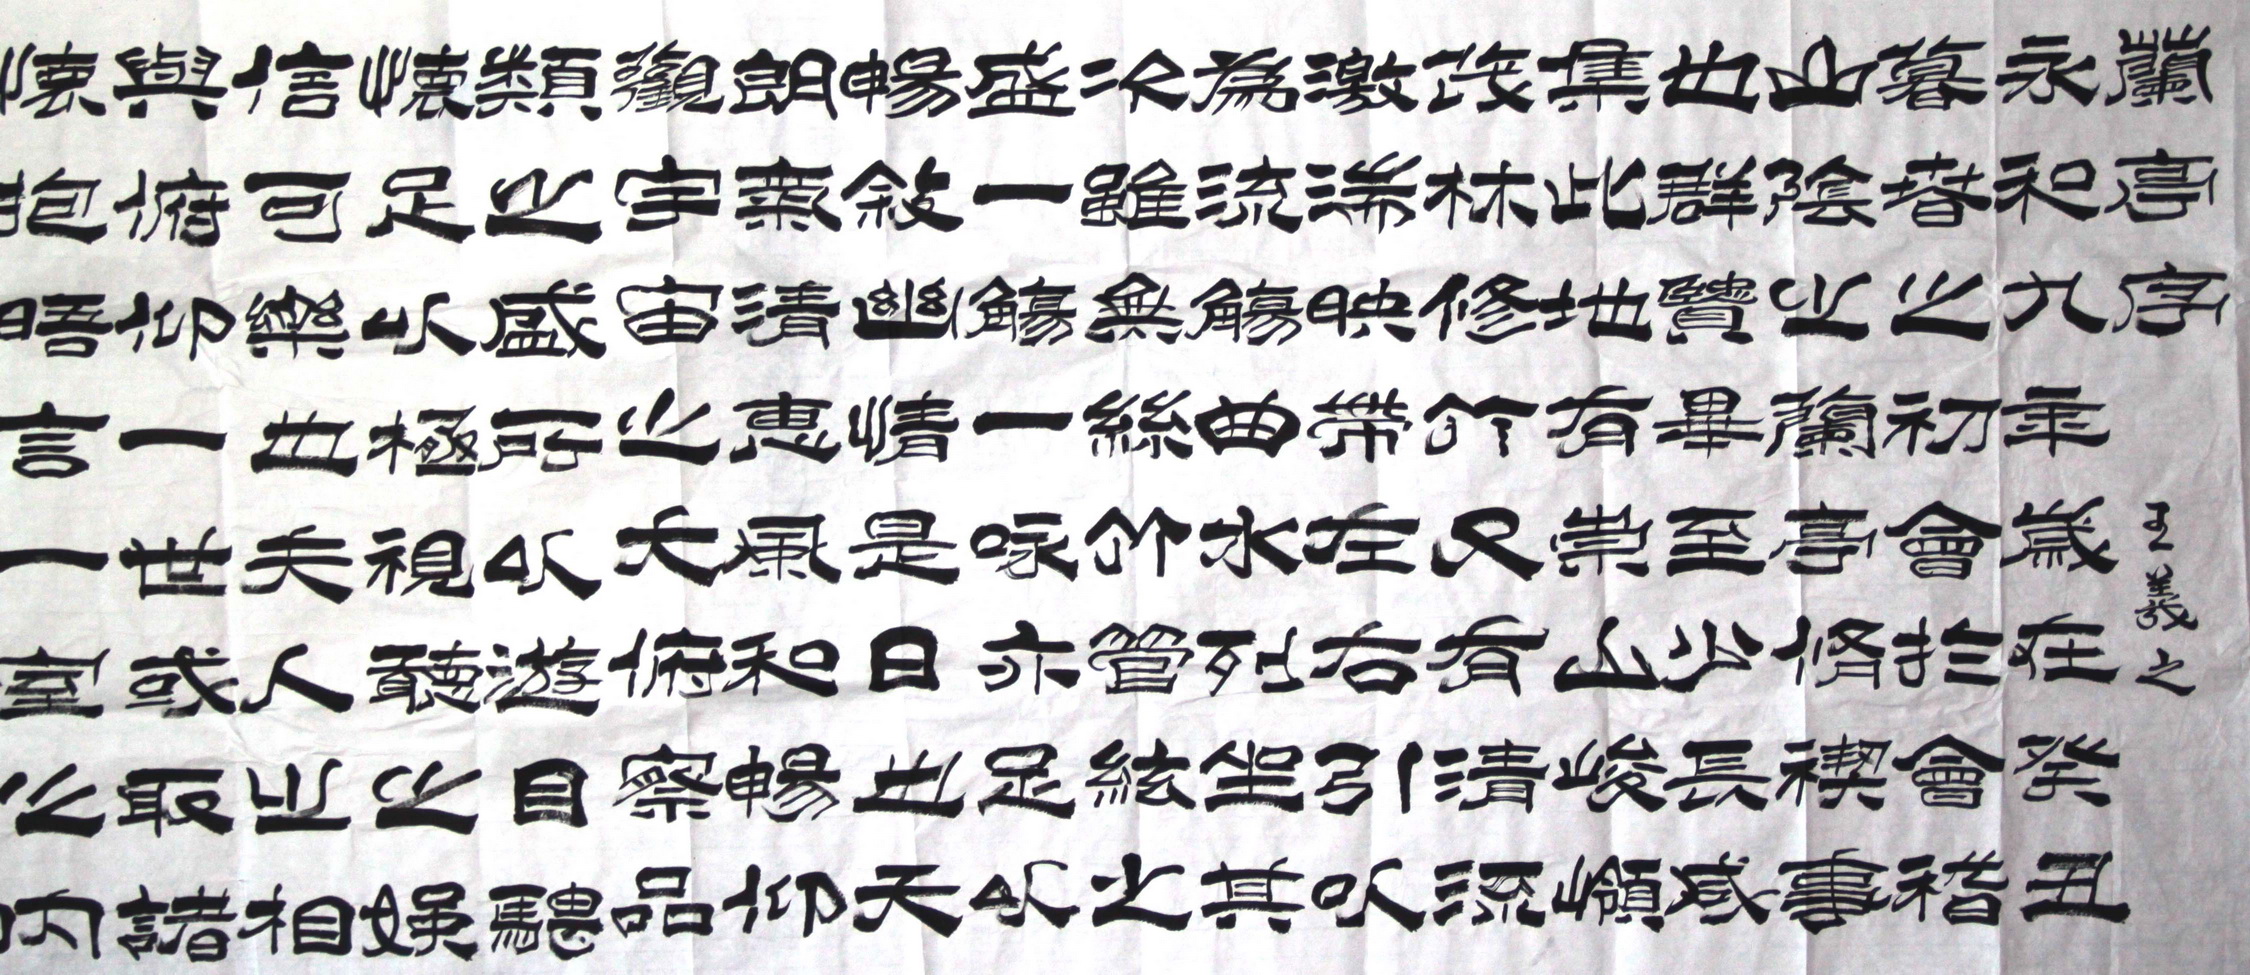 蘭亭序
王羲之
永和九年歲在癸丑
暮春之初會扵會稽
山陰之蘭亭脩禊事
也群賢畢至少長咸
集此地有崇山峻嶺
茂林修竹又有清流
激湍映帶左右引以
為流觴曲水列坐其
次雖無絲竹管絃之
盛一觴一咏亦足以
暢敘幽情是日也天
朗氣清惠風和暢仰
觀宇宙之大俯察品
類之盛所以游目騁
懷足以極視聽之娛
信可樂也夫人之相
與俯仰一世或取諸
懷抱晤言一室之內